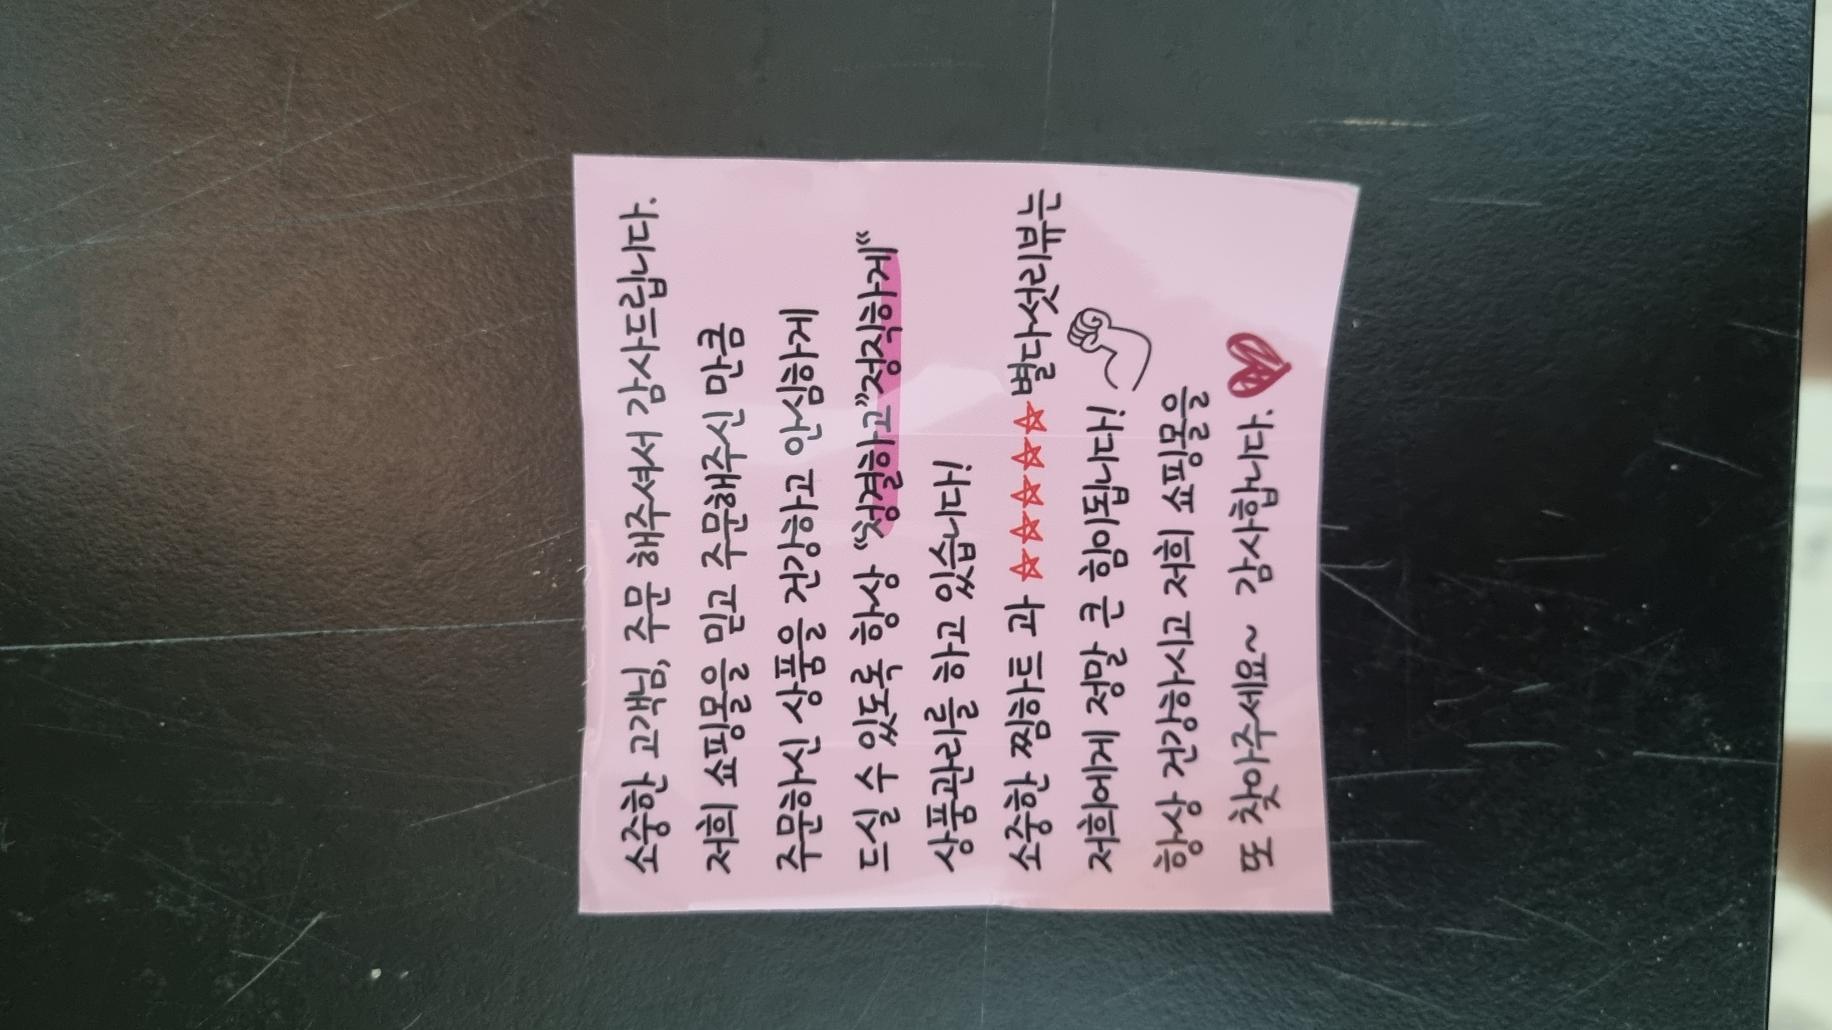 소중한 고객님, 주문 해주셔서 감사드립니다.
저희 쇼핑몰을 믿고 주문해주신 만큼
주문하신 상품을 건강하고 안심하게
드실 수 있도록 항상 “청결하고”정직하게“
상품관리를 하고 있습니다!
소중한 찜하트 과 ☆☆☆☆☆별다섯리뷰는
저희에게 정말 큰 힘이됩니다!
항상 건강하시고 저희 쇼핑몰을
또 찾아주세요~ 감사합니다.